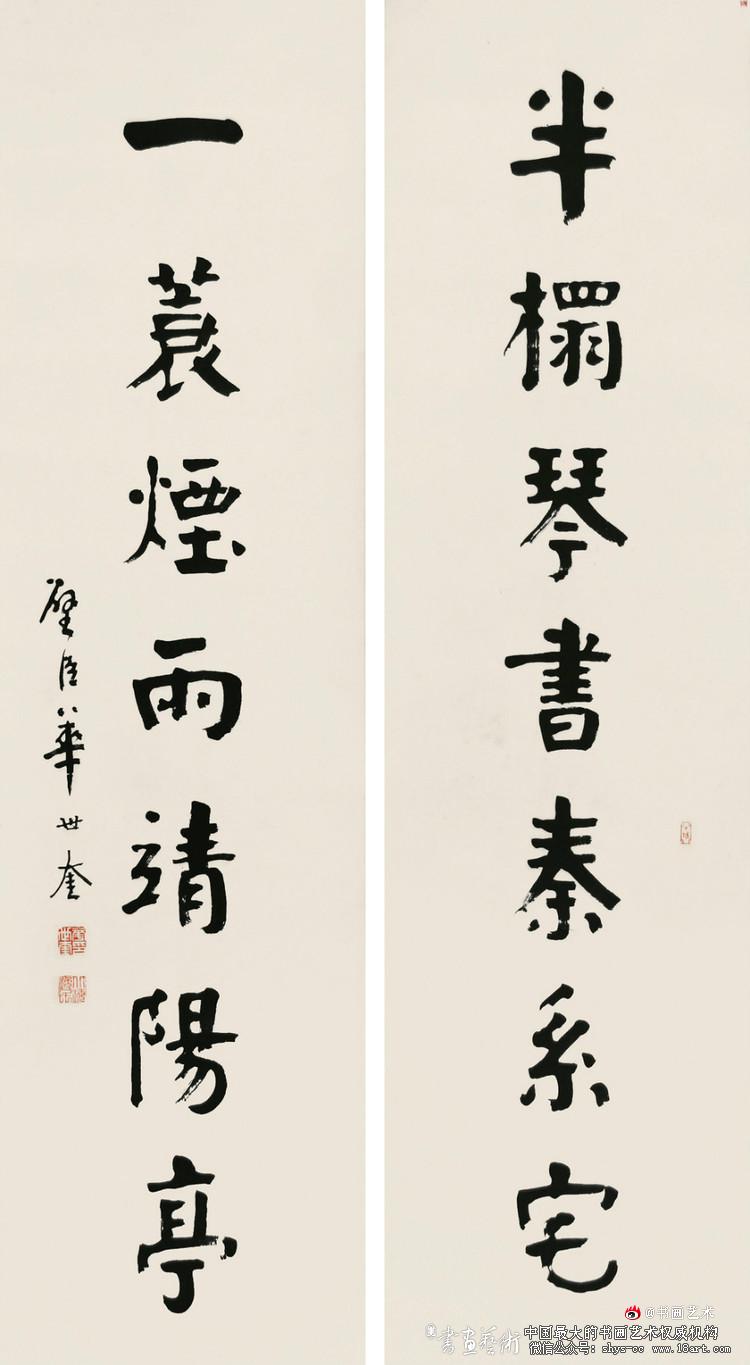 半榻琴書秦系宅
一蓑煙雨靖陽亭
璧臣華世奎
@书画艺术
書畫藝術
中国最大的书画艺术权威机构
微信公众号：shys-cc www.18art.com